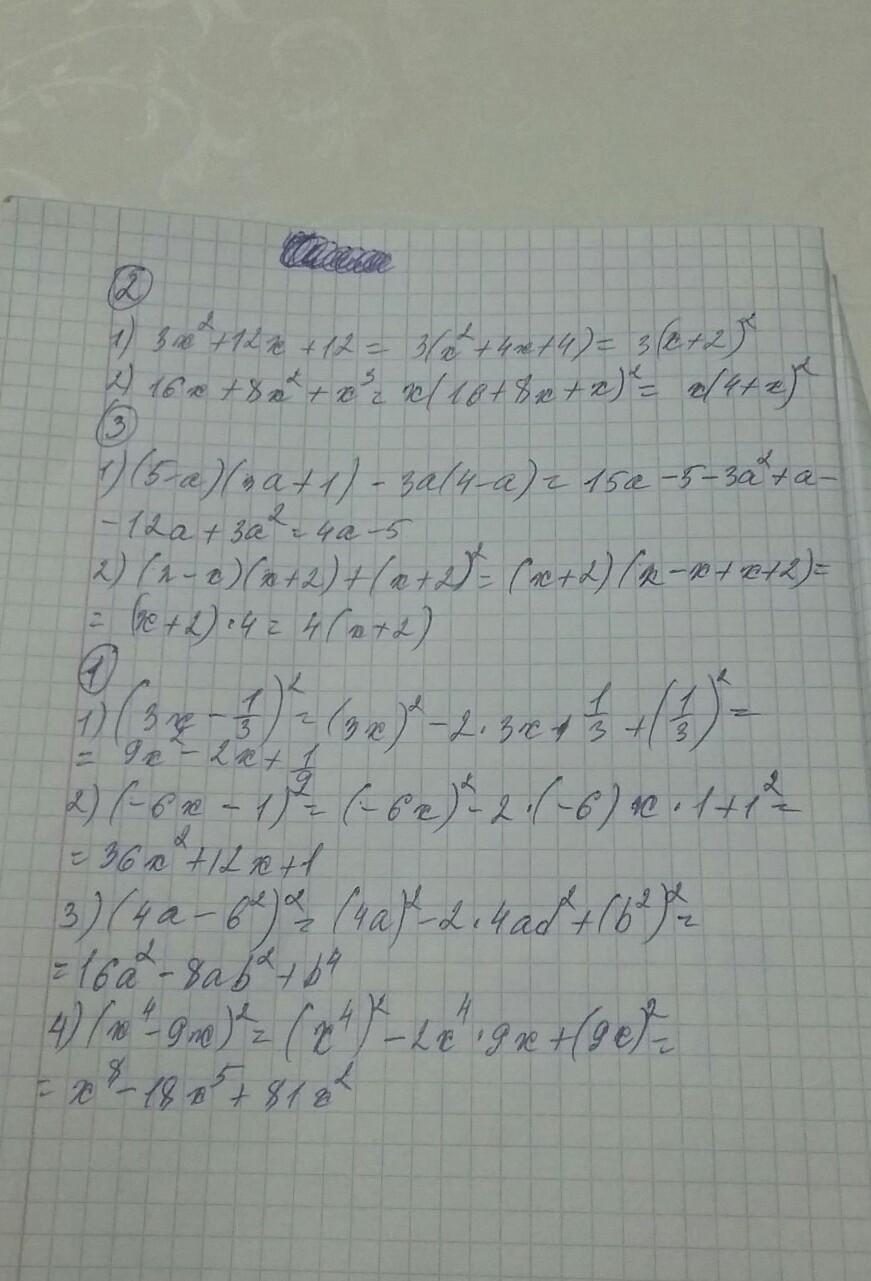 ②
1) 3x²+12x+12 = 3(x²+4x+4) = 3(x+2)²
2) 16x+8x²+x³ = x(16+8x+x)² = x(4+x)²
③
1) (5-a)(3a+1) - 3a(4-a) = 15a-5-3a²+a-
-12a+3a² = 4a-5
2) (2-x)(x+2)+(x+2)² = (x+2)(2-x+x+2) =
= (x+2)·4 = 4(x+2)
①
1) (3x - 1/3)² = (3x)² - 2·3x·1/3 + (1/3)² =
= 9x² - 2x + 1/9
2) (-6x - 1)² = (-6x)² - 2·(-6)x·1+1² =
= 36x²+12x+1
3) (4a - b²)² = (4a)² - 2·4ab² + (b²)² =
= 16a² - 8ab² + b⁴
4) (x⁴ - 9x)² = (x⁴)² - 2x⁴·9x + (9x)² =
= x⁸ - 18x⁵ + 81x²